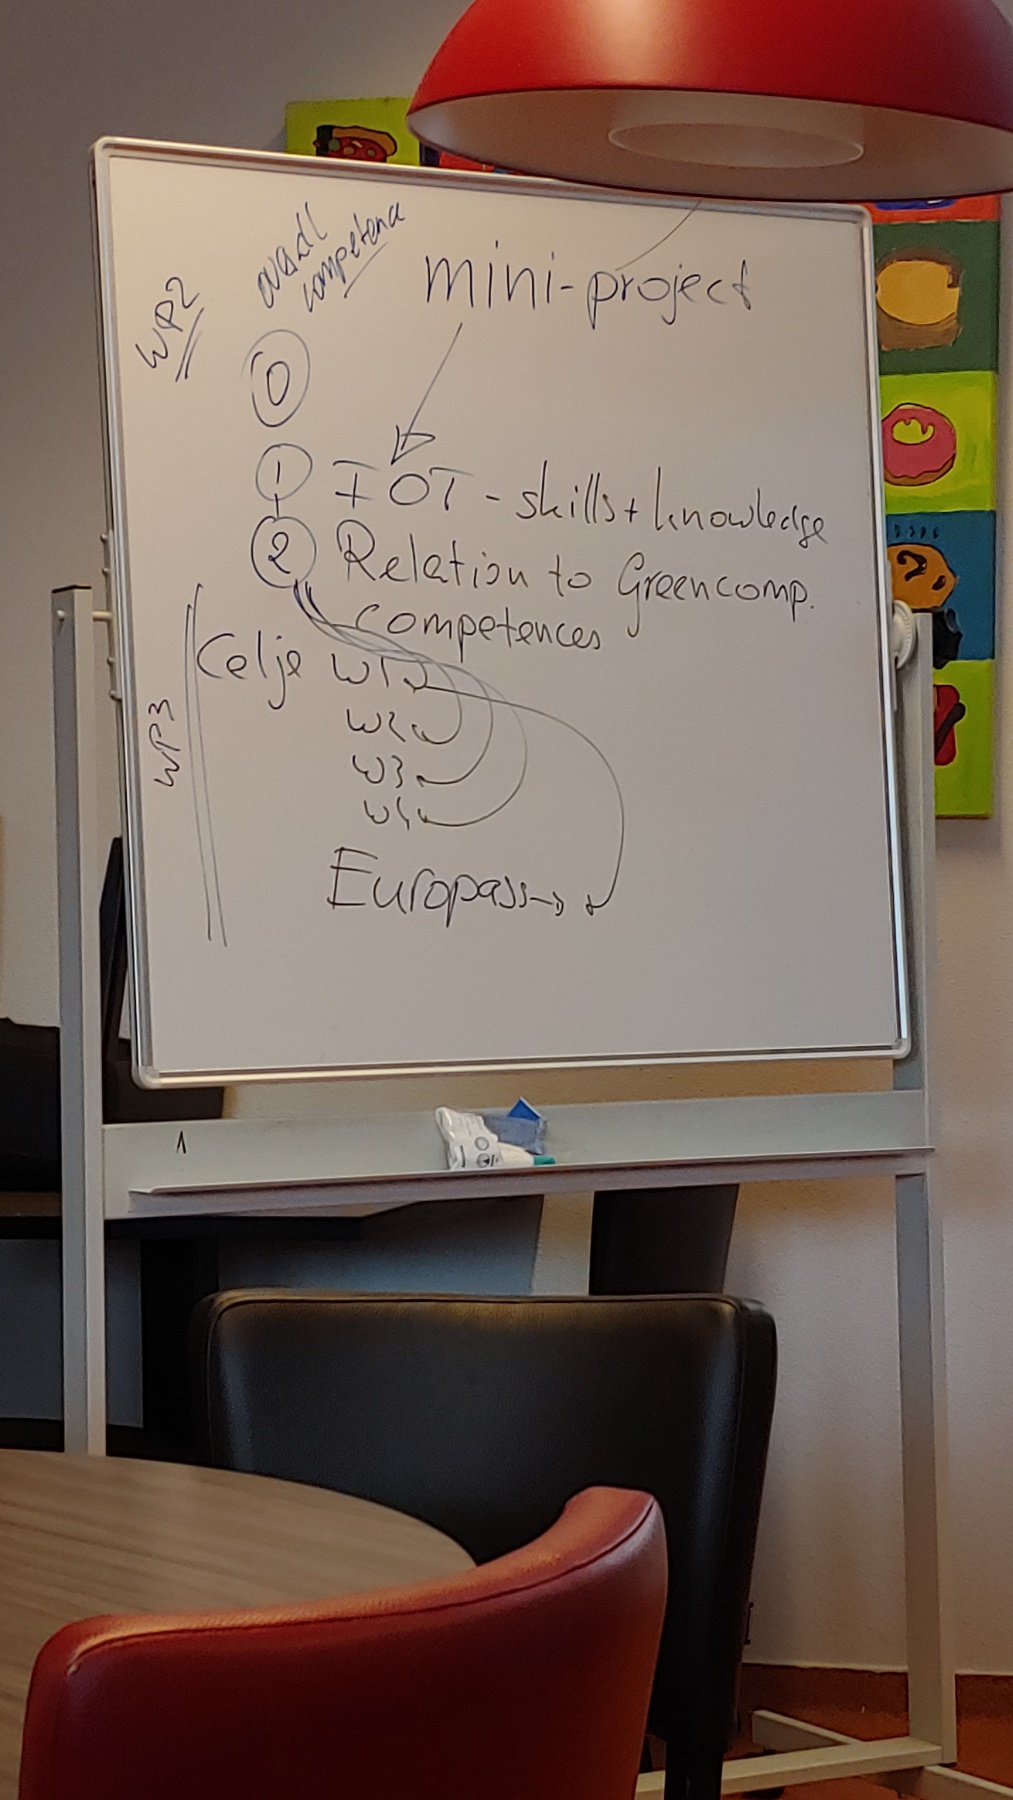 WP2
overall
competence
mini-project
0
1 IOT - skills + knowledge
2 Relation to Greencomp.
competences
WP3
Celje W1
W2
W3
W4
Europass